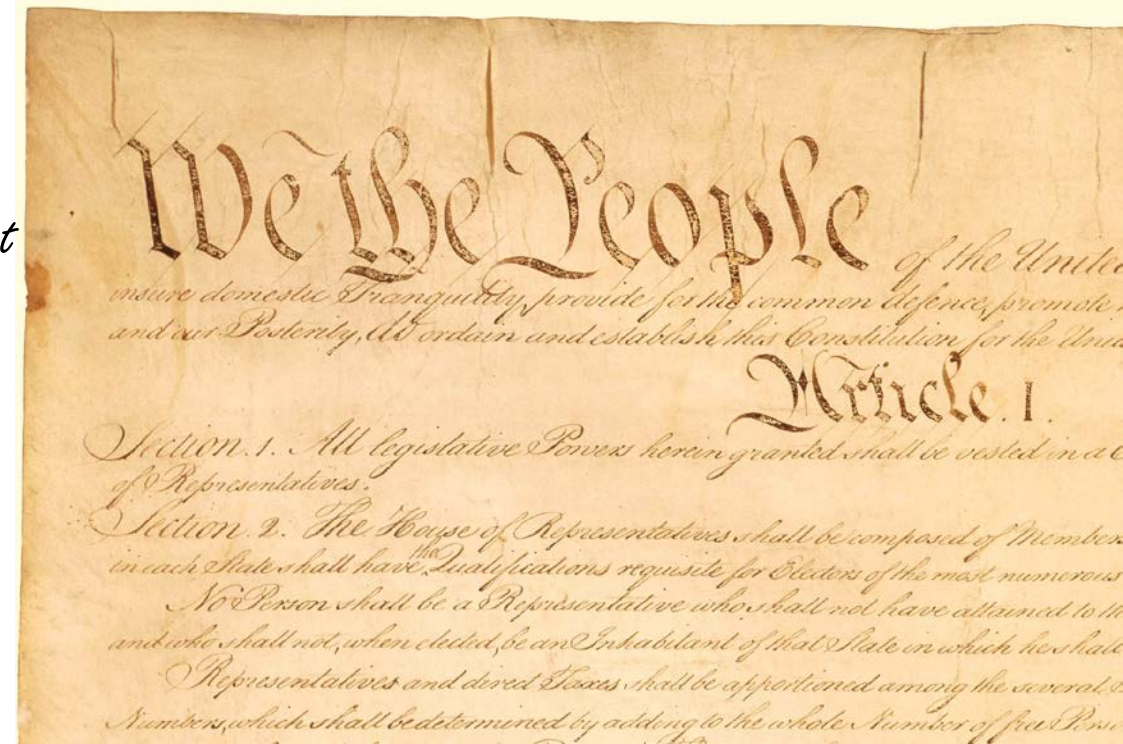 t
We the People of the Unite
insure domestic Tranquility, provide for the common defence, promote
and our Posterity, do ordain and establish this Constitution for the Unit
Article. I.
Section. 1. All legislative Powers herein granted shall be vested in a C
of Representatives.
Section. 2. The House of Representatives shall be composed of Members
in each State shall have the Qualifications requisite for Electors of the most numerous
No Person shall be a Representative who shall not have attained to th
and who shall not, when elected, be an Inhabitant of that State in which he shall
Representatives and direct Taxes shall be apportioned among the several
Numbers, which shall be determined by adding to the whole Number of free Perso